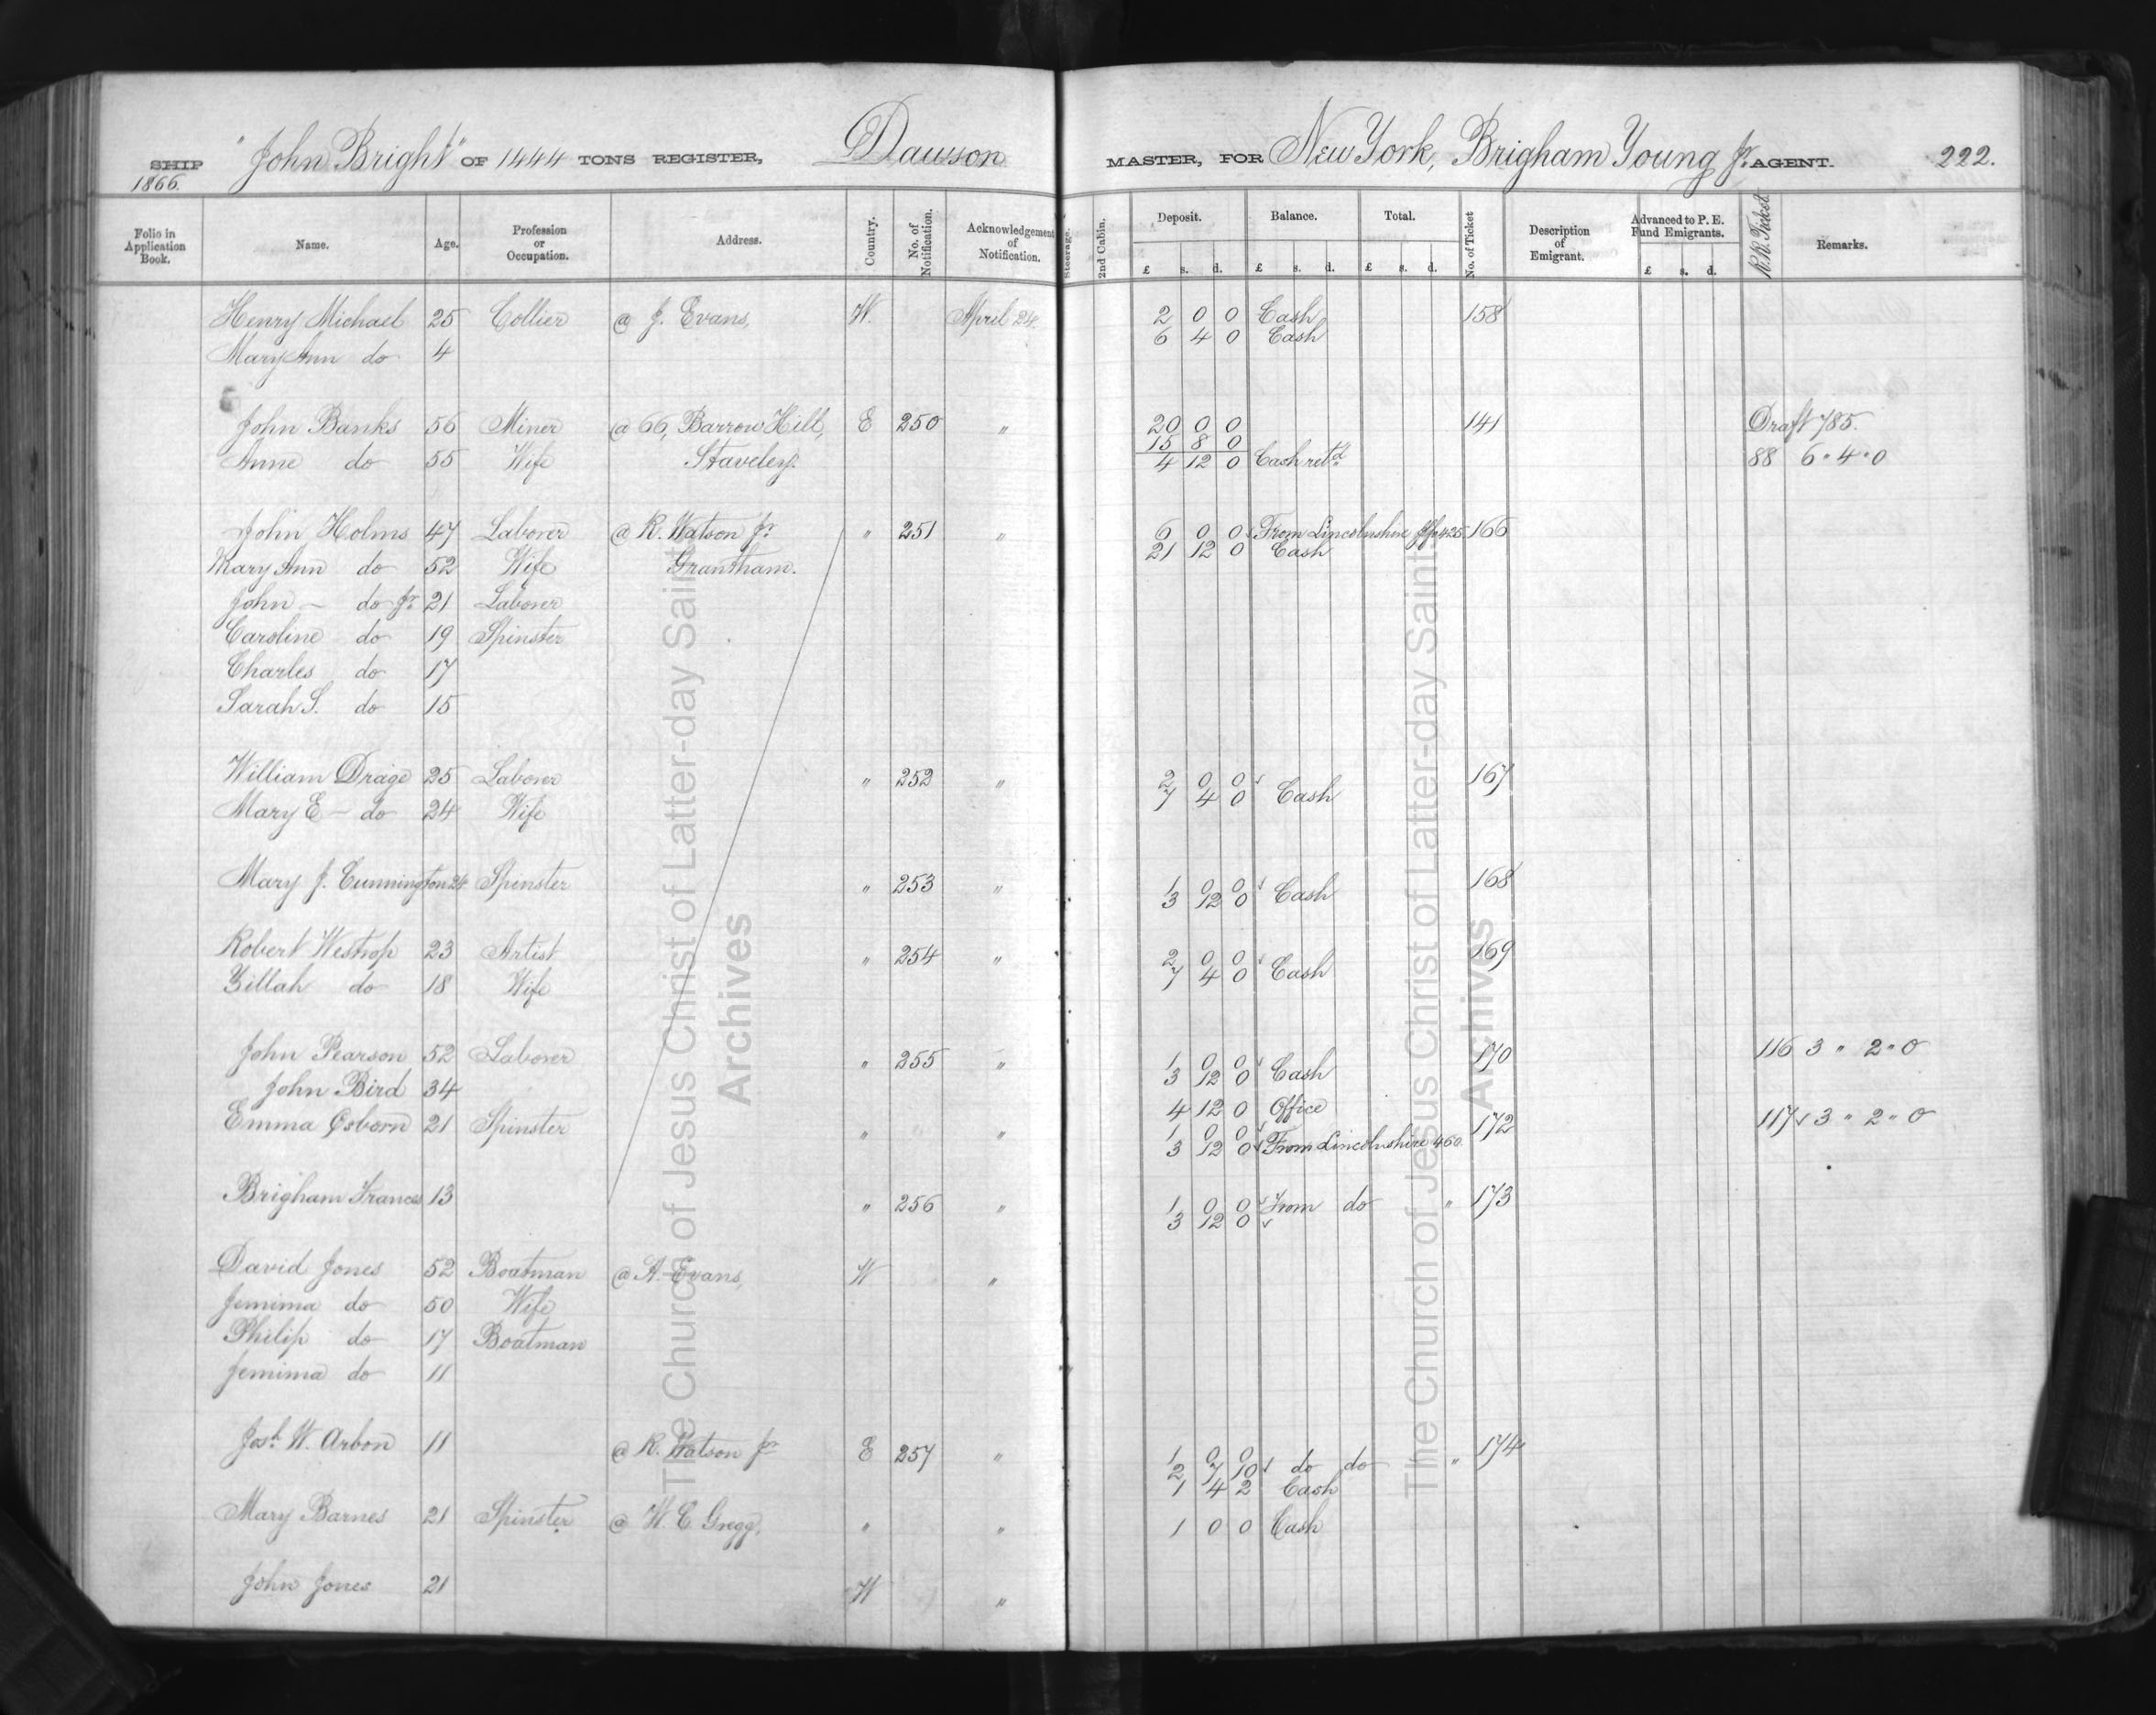 SHIP "John Bright" OF 1444 TONS REGISTER, Dawson MASTER, FOR New York, Brigham Young Jr. AGENT. 222.
1866.
Folio in Application Book. Name. Age. Profession or Occupation. Address. Country. No. of Notification. Acknowledgement of Notification. Steerage. 2nd Cabin. Deposit. Balance. Total. No. of Ticket Description of Emigrant. Advanced to P. E. Fund Emigrants. R.R. Ticket. Remarks.
£ s. d. £ s. d. £ s. d. £ s. d.
Henry Michael 25 Collier @ J. Evans, W. April 24. 2 0 0 Cash 158
6 4 0 Cash
Mary Ann do 4
John Banks 56 Miner @ 66, Barrow Hill, E 250 " 20 0 0 141 Draft 785.
15 8 0
Anne do 55 Wife Staveley. 4 12 0 Cash retd 88 6 " 4 " 0
John Holms 47 Laborer @ R. Watson Jr " 251 " 6 0 0 From Lincolnshire 425 166
21 12 0 Cash
Mary Ann do 52 Wife Grantham.
John - do Jr 21 Laborer
Caroline do 19 Spinster
Charles do 17
Sarah S. do 15
William Drage 25 Laborer " 252 " 2 0 0 167
7 4 0 Cash
Mary E - do 24 Wife
Mary J. Cunnington 24 Spinster " 253 " 1 0 0 168
3 12 0 Cash
Robert Westrop 23 Artist " 254 " 2 0 0 169
7 4 0 Cash
Zillah do 18 Wife
John Pearson 52 Laborer " 255 " 1 0 0 170 116 3 " 2 " 0
3 12 0 Cash
John Bird 34 4 12 0 Office
Emma Osborn 21 Spinster " " 1 0 0 172 117 3 " 2 " 0
3 12 0 From Lincolnshire 460
Brigham Frances 13 " 256 " 1 0 0 From do " 173
3 12 0
David Jones 52 Boatman @ A. Evans, W "
Jemima do 50 Wife
Philip do 17 Boatman
Jemima do 11
Josh. W. Arbon 11 @ R. Watson Jr E 257 " 1 0 0 174
2 7 10 do do "
1 4 2 Cash
Mary Barnes 21 Spinster @ W. C. Gregg, " " 1 0 0 Cash
John Jones 21 W "
The Church of Jesus Christ of Latter-day Saints
Archives
The Church of Jesus Christ of Latter-day Saints
Archives